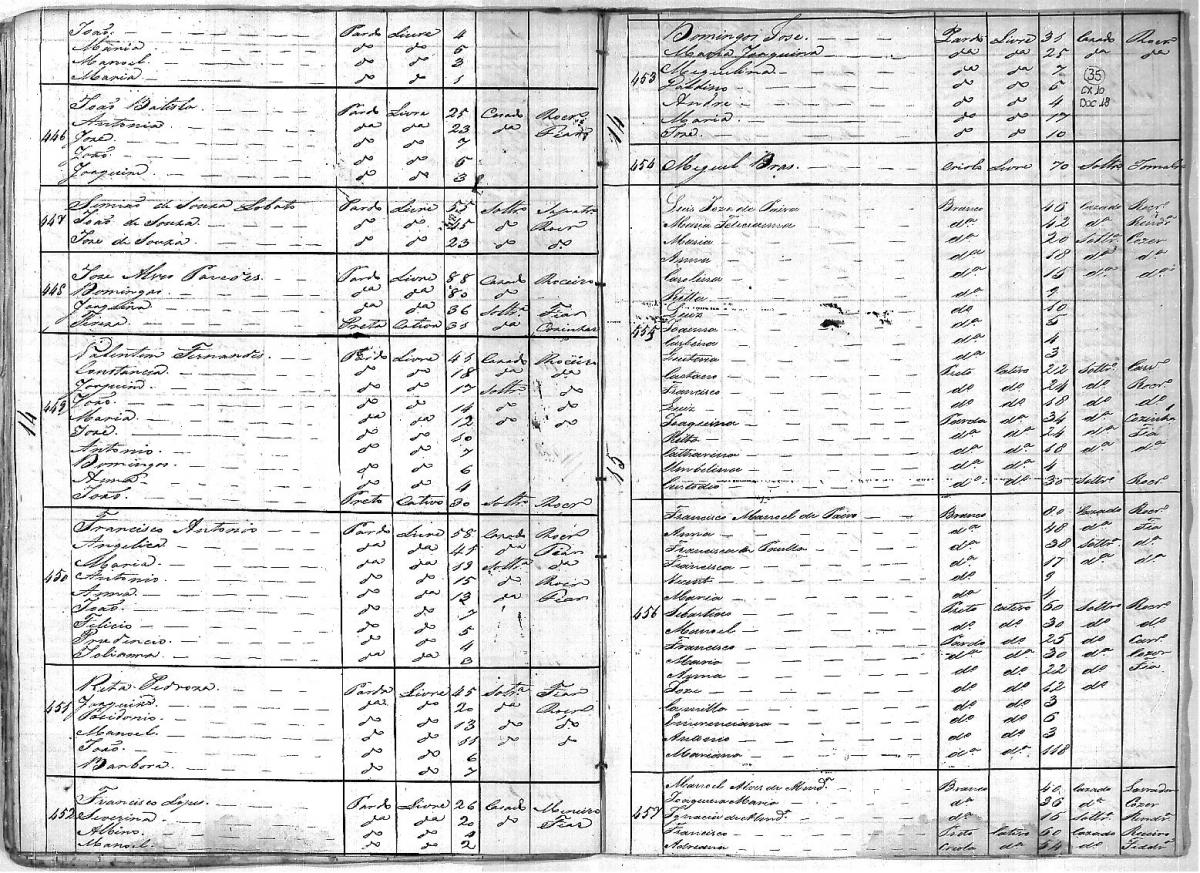 João Pardo Livre 4
Maria do do 5
Manoel do do 3
Maria da da 1
446
João Batista Pardo Livre 25 Casado Rocrº
Antonia da da 23 da Fiar
José do do 7
João do do 5
Joaquim do do 3
447
Simião de Souza Lobato Pardo Livre 55 Soltrº
João de Souza do do 45 do Rocrº
José de Souza do do 23 do do
448
José Alves Pardo Livre 88 Casado Roceiro
Domingas da da 80 do
Joaquina da da 36 Soltrª Fiar
Preta Cativa 35 da Cozinhar
14
449
Valentim Fernandes Pardo Livre 45 Casado Roceiro
Constancia do do 18 da da
Joaquim do do 17 Soltrº do
João do do 14 do do
Maria da da 12 do do
José do do 10
Antonio do do 7
Domingos do do 6
Anna do do 4
João Preto Cativo 30 Soltrº Rocrº
450
Francisco Antonio Pardo Livre 58 Casado Rocrº
Angelica da da 45 da Fiar
Maria da da 18 Soltrª da
Antonio do do 15 do Rocrº
Anna da da 12 da Fiar
João do do 7
Felicio do do 5
Prudencio do do 4
Juliana da da 3
451
Rita Pedroza Parda Livre 45 Soltrª Fiar
Joaquim da do 20 da Rocrº
Possidonio do do 13 do do
Manoel do do 11 do do
João do do 6
Barbora do do 7
452
Francisco Lopes Pardo Livre 26 Casado Mineiro
Severina da da 20 da Fiar
Albino do do 4
Manoel do do 2
453
Domingos José Pardo Livre 31 Casado Rocrº
Maria Joaquina da da 25 da da
Miguelina da da 7
Galdino do do 5
André do do 4
Maria da da 17
José do do 10
35
CX 10
DOC 18
14
454 Miguel Bras Criolo Livre 70 Soltrº
455
Luis Joze de Paiva Branco 46 Cazado Rocrº
Maria Feliciana dª 42 dª
Maria dª 20 Soltrª Cozer
Anna dª 18 dª dª
Carolina dª 15 dª dª
Ritta dª 9
Luiz do 10
Joanna dª 5
dª 4
dª 3
Caetano Preto Cativo 22 Soltrº Carrº
Francisco do do 24 do Rocrº
Luiz do do 18 do do
Joaquina Parda dª 34 dª Cozinhª
Ritta dª dª 24 dª Fia
Catharina dª dª 18 dª dª
Umbelina dª dª 4
Custodio dº dº 30 Soltrº Rocrº
15
456
Francisco Manoel de Paiva Branco 60 Cazado Rocrº
Anna dª 48 dª Fia
Francisca de Paulla dª 38 Soltrª dª
Francisca dª 17 dª dª
Vicente dº 9
Maria dª 4
Sebastiao Preto Cativo 60 Soltrº Rocrº
Manoel dº dº 30 do do
Francisco Pardo dº 25 do Carrº
Maria dª dª 30 dª Cozer
Anna dª dª 22 dª Fia
Joze do do 12 do
Camillo do do 3
Emerenciana do do 6
Antonio do do 3
Mariana dª dª 18
457
Manoel Alves de Mendª Branco 40 Cazado Lavrador
Joaquina Maria dª 26 dª Cozer
Ignacia de Mendª dª 15 Soltrª
Francisco Preto Cativo 60 Cazado Roceiro
Adriana Criola dª 54 dª